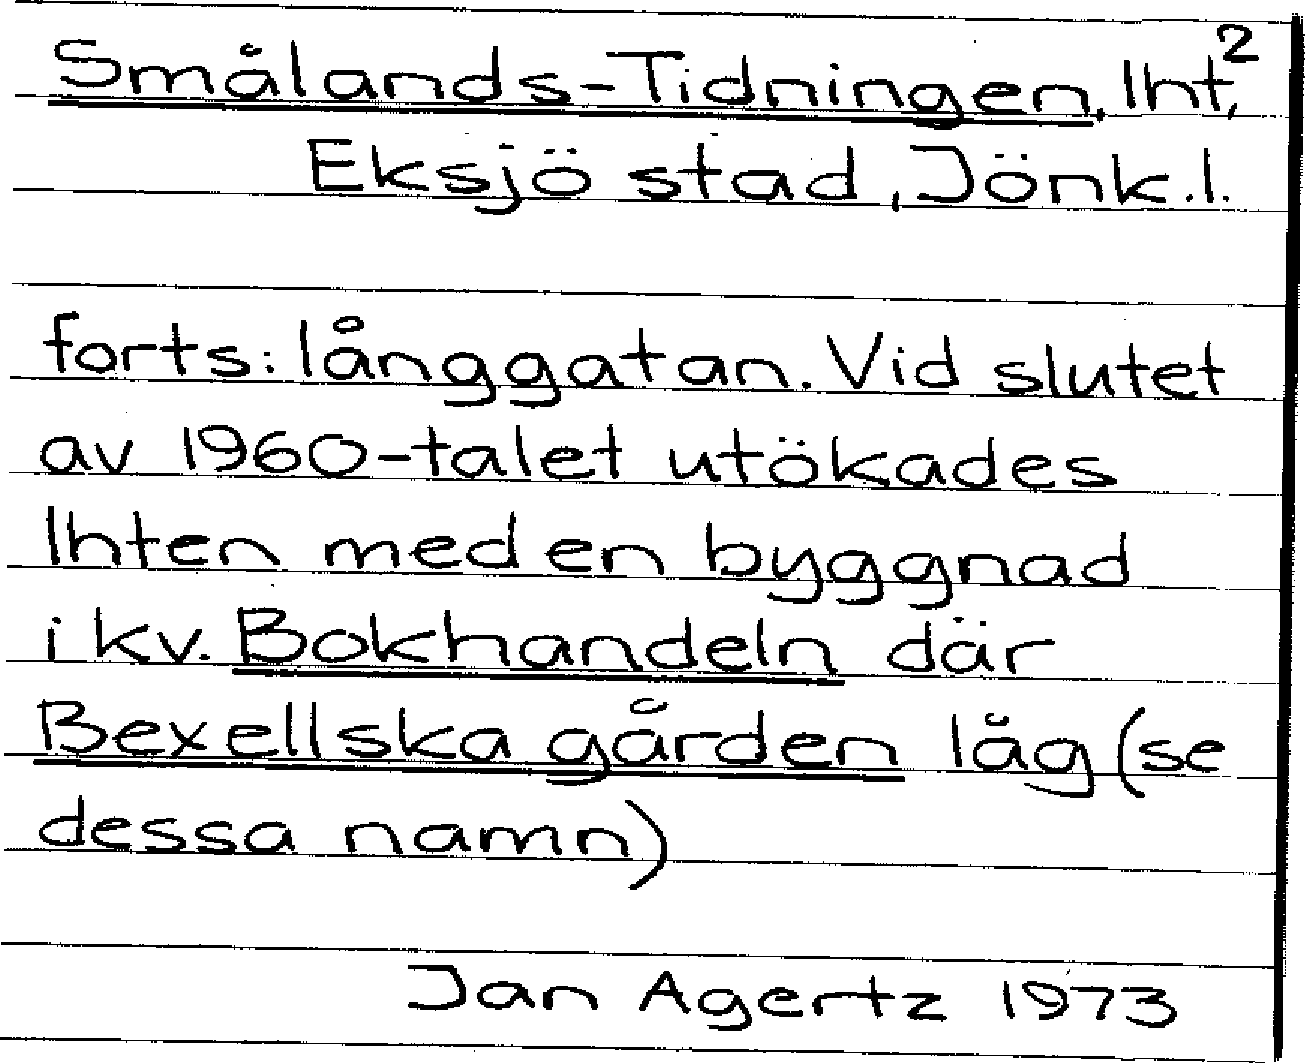 Smålands-Tidningen, lht, 2
Eksjö stad, Jönk.l.
forts: långgatan. Vid slutet
av 1960-talet utökades
lhten med en byggnad
i kv. Bokhandeln där
Bexellska gården låg (se
dessa namn)
Jan Agertz 1973